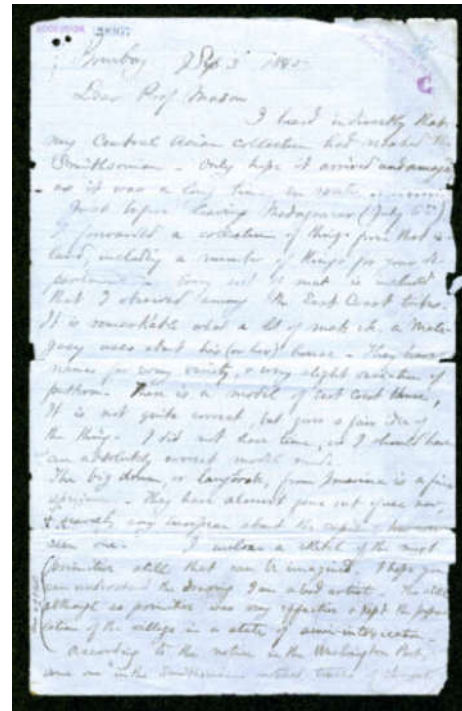 Bombay Sep 3rd
Dear Prof Mason
I heard indirectly that
my Central Asian collection had reached the
Smithsonian - Only hope it arrived undamaged
as it was a long time en route
Just before leaving Madagascar (July 6th)
I forwarded a collection of things from that is-
land, including a number of things for your de-
partment - Every sort of mat is included
that I observed among the East Coast tribes.
It is remarkable what a lot of mats etc. a Mala-
gasy uses about his (or her) house - They have
names for every variety, & very slight variation of
pattern. There is a model of east coast house,
It is not quite correct, but gives a fair idea of
the thing. I did not have time, or I should have
an absolutely correct model made.
The big drum, or from is a fine
specimen - They have almost gone out of use now,
& scarcely any European about the
seen one. I inclose a sketch of the most
primitive still that can be imagined. I hope you
can understand the drawing I am a bad artist. The still
although so primitive was very effective & kept the popu-
lation of the village in a state of semi-intoxication.
According to the notice in the Washington Post,
some one in the Smithsonian noticed traces of